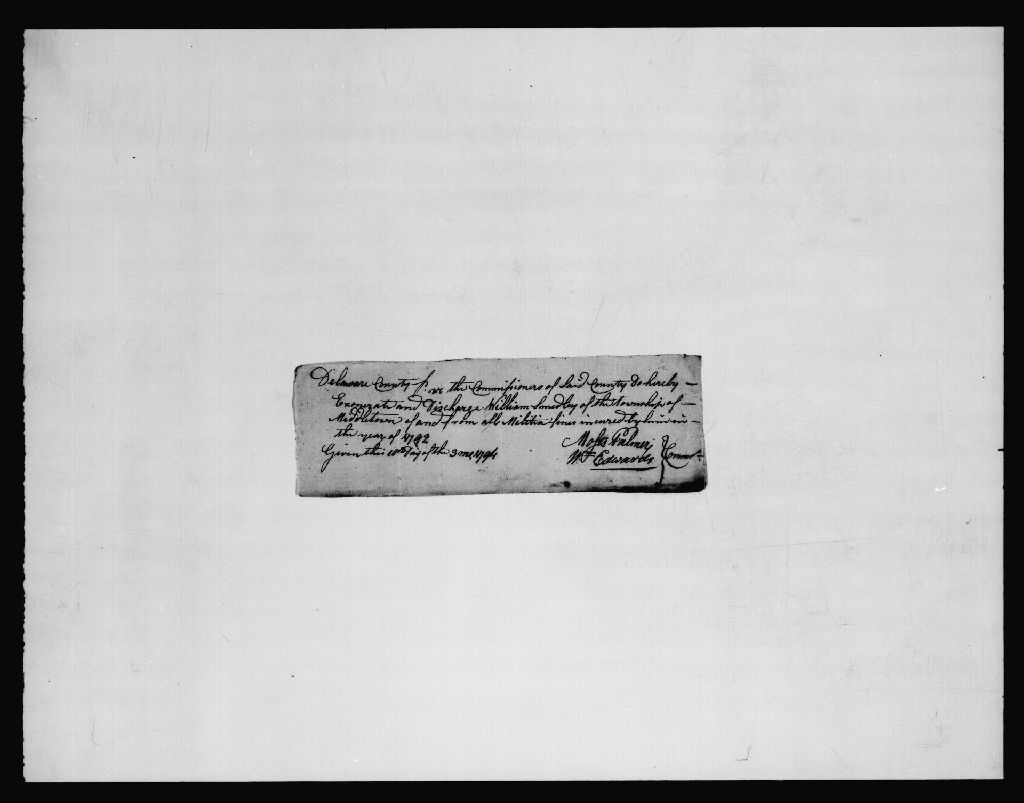 Delaware County ss We the Commissioners of Said County Do hereby —
Exonerate and Discharge William Smedley of the township of —
Middletown of and from all Militia fines incured by him in —
the year of 1792
Given this 10th Day of the 3 mo 1794
Moses Palmer
Wm Edwards } Commrs